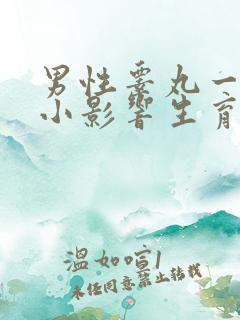 男性睾丸一
小影響生育
溫如喧1
未经同意禁止转载